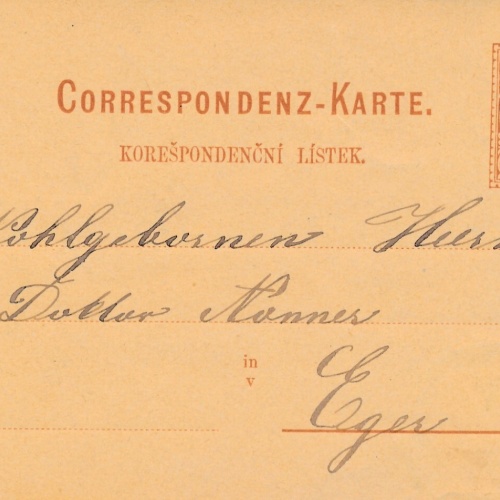 CORRESPONDENZ-KARTE.
KOREŠPONDENČNÍ LÍSTEK.
Wohlgebornen Herrn
Doktor Nonner
in
v
Eger